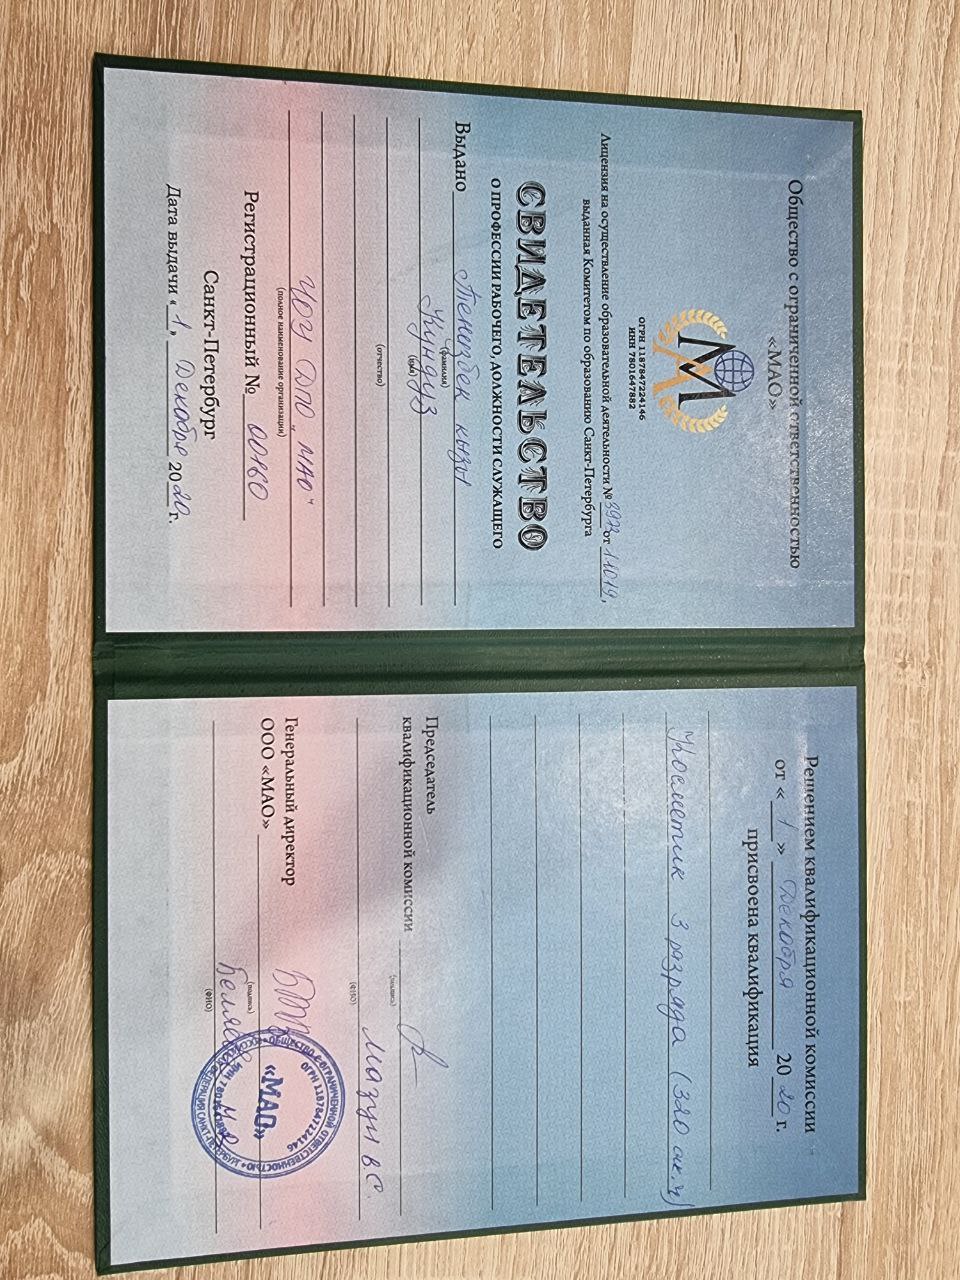 Общество с ограниченной ответственностью
«МАО»
ОГРН 1187847224146
ИНН 7801647882
Лицензия на осуществление образовательной деятельности № 3973 от 11019,
выданная Комитетом по образованию Санкт-Петербурга
СВИДЕТЕЛЬСТВО
О ПРОФЕССИИ РАБОЧЕГО, ДОЛЖНОСТИ СЛУЖАЩЕГО
Выдано Тенизбек кызы
(фамилия)
Кундуз
(имя)
(отчество)
ЧОУ ДПО "МАО"
(полное наименование организации)
Регистрационный №
Санкт-Петербург
Дата выдачи « 1 » Декабря 20 20 г.
Решением квалификационной комиссии
от « 1 » Декабря 20 20 г.
присвоена квалификация
Косметик 3 разряда (320 ак.ч)
Председатель
квалификационной комиссии
(подпись)
Мазун В С.
(ФИО)
Генеральный директор
ООО «МАО»
(подпись)
(ФИО)
ОБЩЕСТВО С ОГРАНИЧЕННОЙ ОТВЕТСТВЕННОСТЬЮ
ОГРН 1187847224146
«МАО»